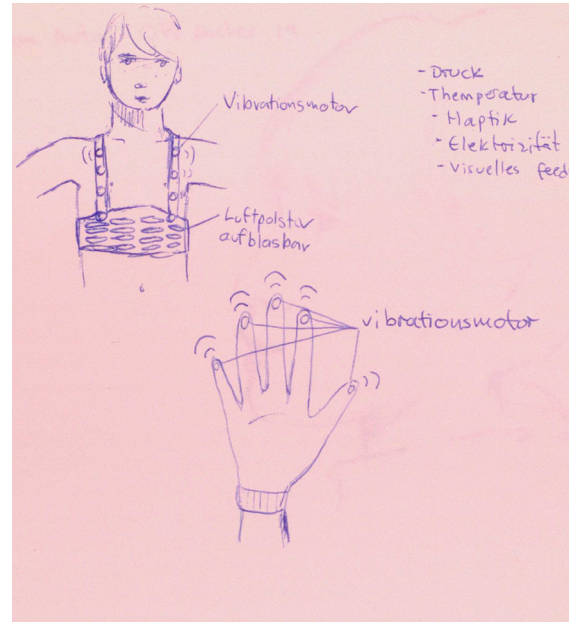 Vibrationsmotor
Luftpolster
aufblasbar
- Druck
- Themperatur
- Haptik
- Elektrizität
- Visuelles feed
vibrationsmotor